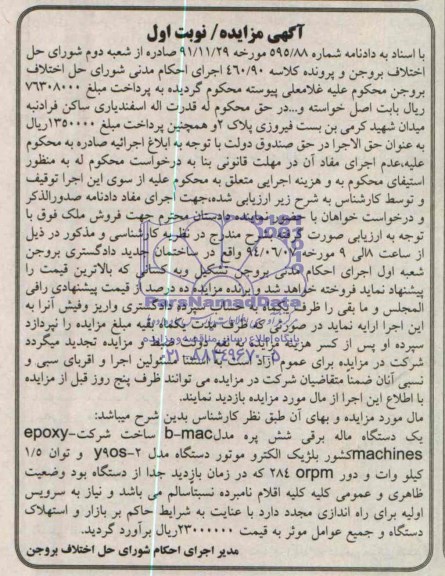 آگهی مزایده/ نوبت اول
با اسناد به دادنامه شماره ۵۹۵/۸۸ مورخه ۹۱/۱۱/۲۹ صادره از شعبه دوم شورای حل
اختلاف بروجن و پرونده کلاسه ۴۶۰/۹۰ اجرای احکام مدنی شورای حل اختلاف
بروجن محکوم علیه غلامعلی پیوسته محکوم گردیده به پرداخت مبلغ ۷۶۳۰۸۰۰۰
ریال بابت اصل خواسته و...در حق محکوم له قدرت اله اسفندیاری ساکن فرادنبه
میدان شهید کرمی بن بست فیروزی پلاک ۲و همچنین پرداخت مبلغ ۱۳۵۰۰۰۰ریال
به عنوان حق الاجرا در حق صندوق دولت با توجه به ابلاغ اجرائیه صادره به محکوم
علیه،عدم اجرای مفاد آن در مهلت قانونی بنا به درخواست محکوم له به منظور
استیفای محکوم به و هزینه اجرایی متعلق به محکوم علیه از سوی این اجرا توقیف
و توسط کارشناس به شرح زیر ارزیابی شده،جهت اجرای مفاد دادنامه صدورالذکر
و درخواست خواهان با حضور نماینده دادستان محترم جهت فروش ملک فوق با
توجه به ارزیابی صورت گرفته بشرح مندرج در نظریه کارشناسی و مذکور در ذیل
از ساعت ۸الی ۹ مورخه ۹۴/۰۶/۰۷ واقع در ساختمان جدید دادگستری بروجن
شعبه اول اجرای احکام مدنی بروجن تشکیل وبه کسانی که بالاترین قیمت را
پیشنهاد نماید فروخته خواهد شد و برنده مزایده ده درصد از قیمت پیشنهادی رافی
المجلس و ما بقی را ظرف یکماه به حساب سپرده دادگستری واریز وفیش آنرا به
این اجرا ارایه نماید در صورتی که ظرف مدت یکماه بقیه مبلغ مزایده را نپردازد
سپرده او پس از کسر هزینه مزایده به نفع دولت ضبط و مزایده تجدید میگردد
شرکت در مزایده برای عموم آزاد است با استثنا مسئولین اجرا و اقربای سبی و
نسبی آنان ضمنا متقاضیان شرکت در مزایده می توانند ظرف پنج روز قبل از مزایده
با اطلاع این اجرا از مال مورد مزایده بازدید نمایند.
مال مورد مزایده و بهای آن طبق نظر کارشناس بدین شرح میباشد:
یک دستگاه ماله برقی شش پره مدلb-mac ساخت شرکت-epoxy
machinesکشور بلژیک الکترو موتور دستگاه مدل y۹os-۲ و توان ۱/۵
کیلو وات و دور ۲۸۴ orpm که در زمان بازدید جدا از دستگاه بود وضعیت
ظاهری و عمومی کلیه کلیه اقلام نامبرده نسبتاًسالم می باشد و نیاز به سرویس
اولیه برای راه اندازی مجدد دارد با عنایت به شرایط حاکم بر بازار و استهلاک
دستگاه و جمیع عوامل موثر به قیمت ۲۳۰۰۰۰۰۰ریال برآورد گردید.
مدیر اجرای احکام شورای حل اختلاف بروجن
ParsNamadData
پایگاه اطلاع رسانی مناقصه و مزایده
۰۲۱-۸۸۳۴۹۶۷۰-۵